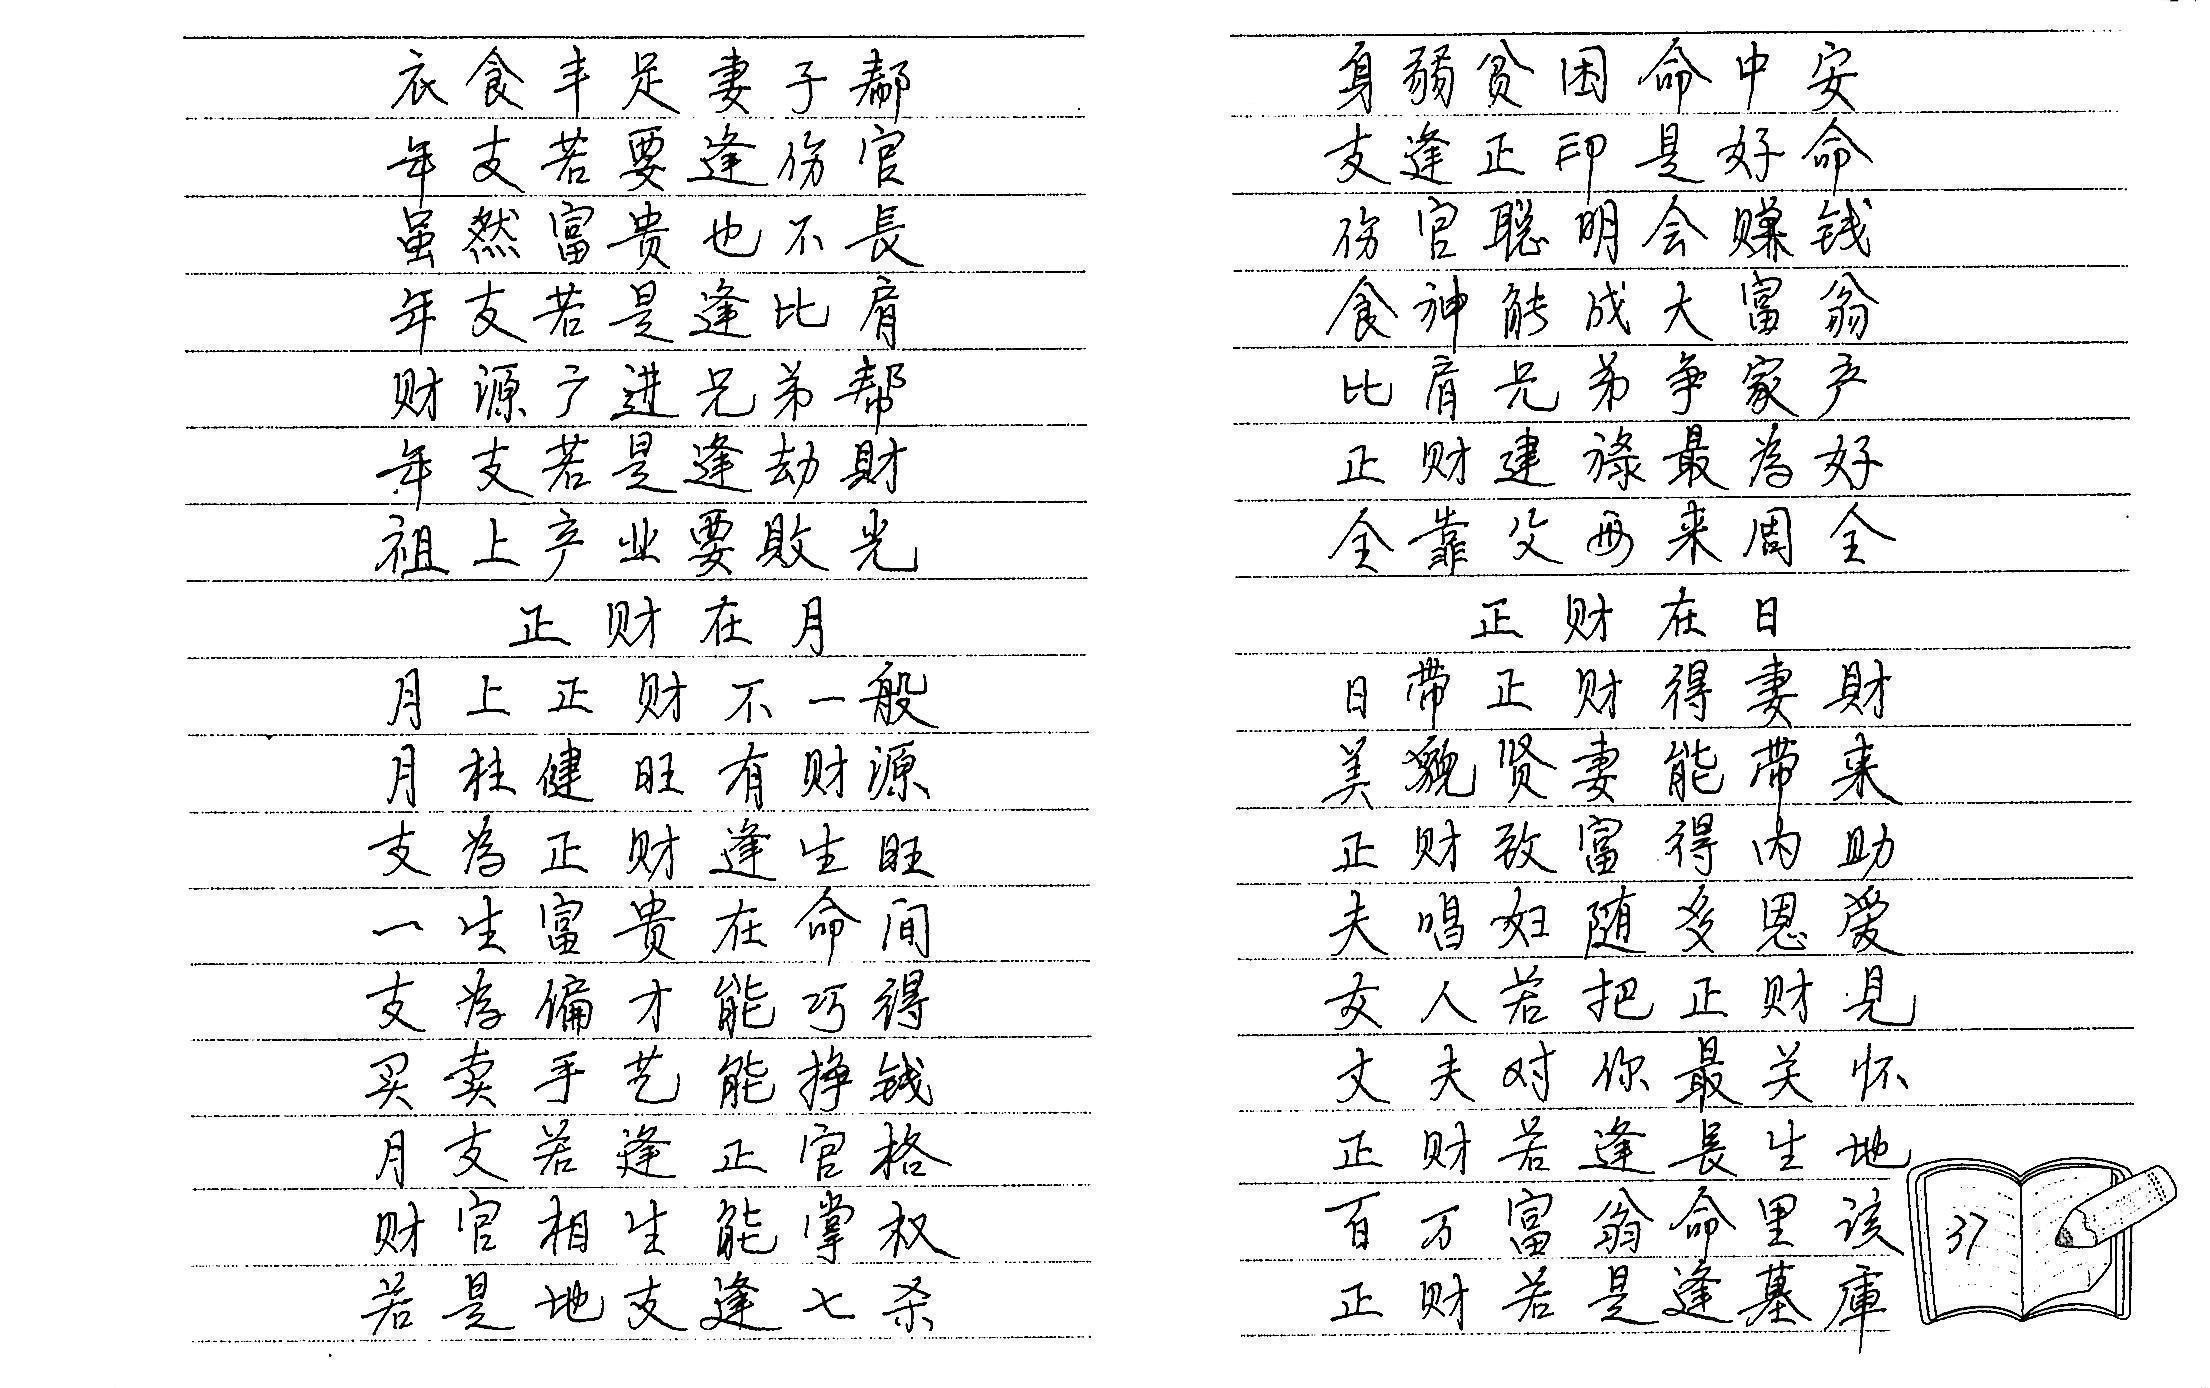 衣食丰足妻子鄢
年支若要逢伤官
虽然富贵也不長
年支若是逢比肩
财源广进兄弟帮
年支若是逢劫財
祖上产业要敗光
正财在月
月上正财不一般
月柱健旺有财源
支為正财逢生旺
一生富贵在命间
支為偏才能巧得
买卖手艺能挣钱
月支若逢正官格
财官相生能掌权
若是地支逢七杀
身弱贫困命中安
支逢正印是好命
伤官聪明会赚钱
食神能成大富翁
比肩兄弟争家产
正财建祿最為好
全靠父母来周全
正财在日
日带正财得妻財
美貌贤妻能带来
正财致富得内助
夫唱妇随多恩爱
女人若把正财見
丈夫对你最关怀
正财若逢長生地
百万富翁命里该
正财若是逢墓庫
37